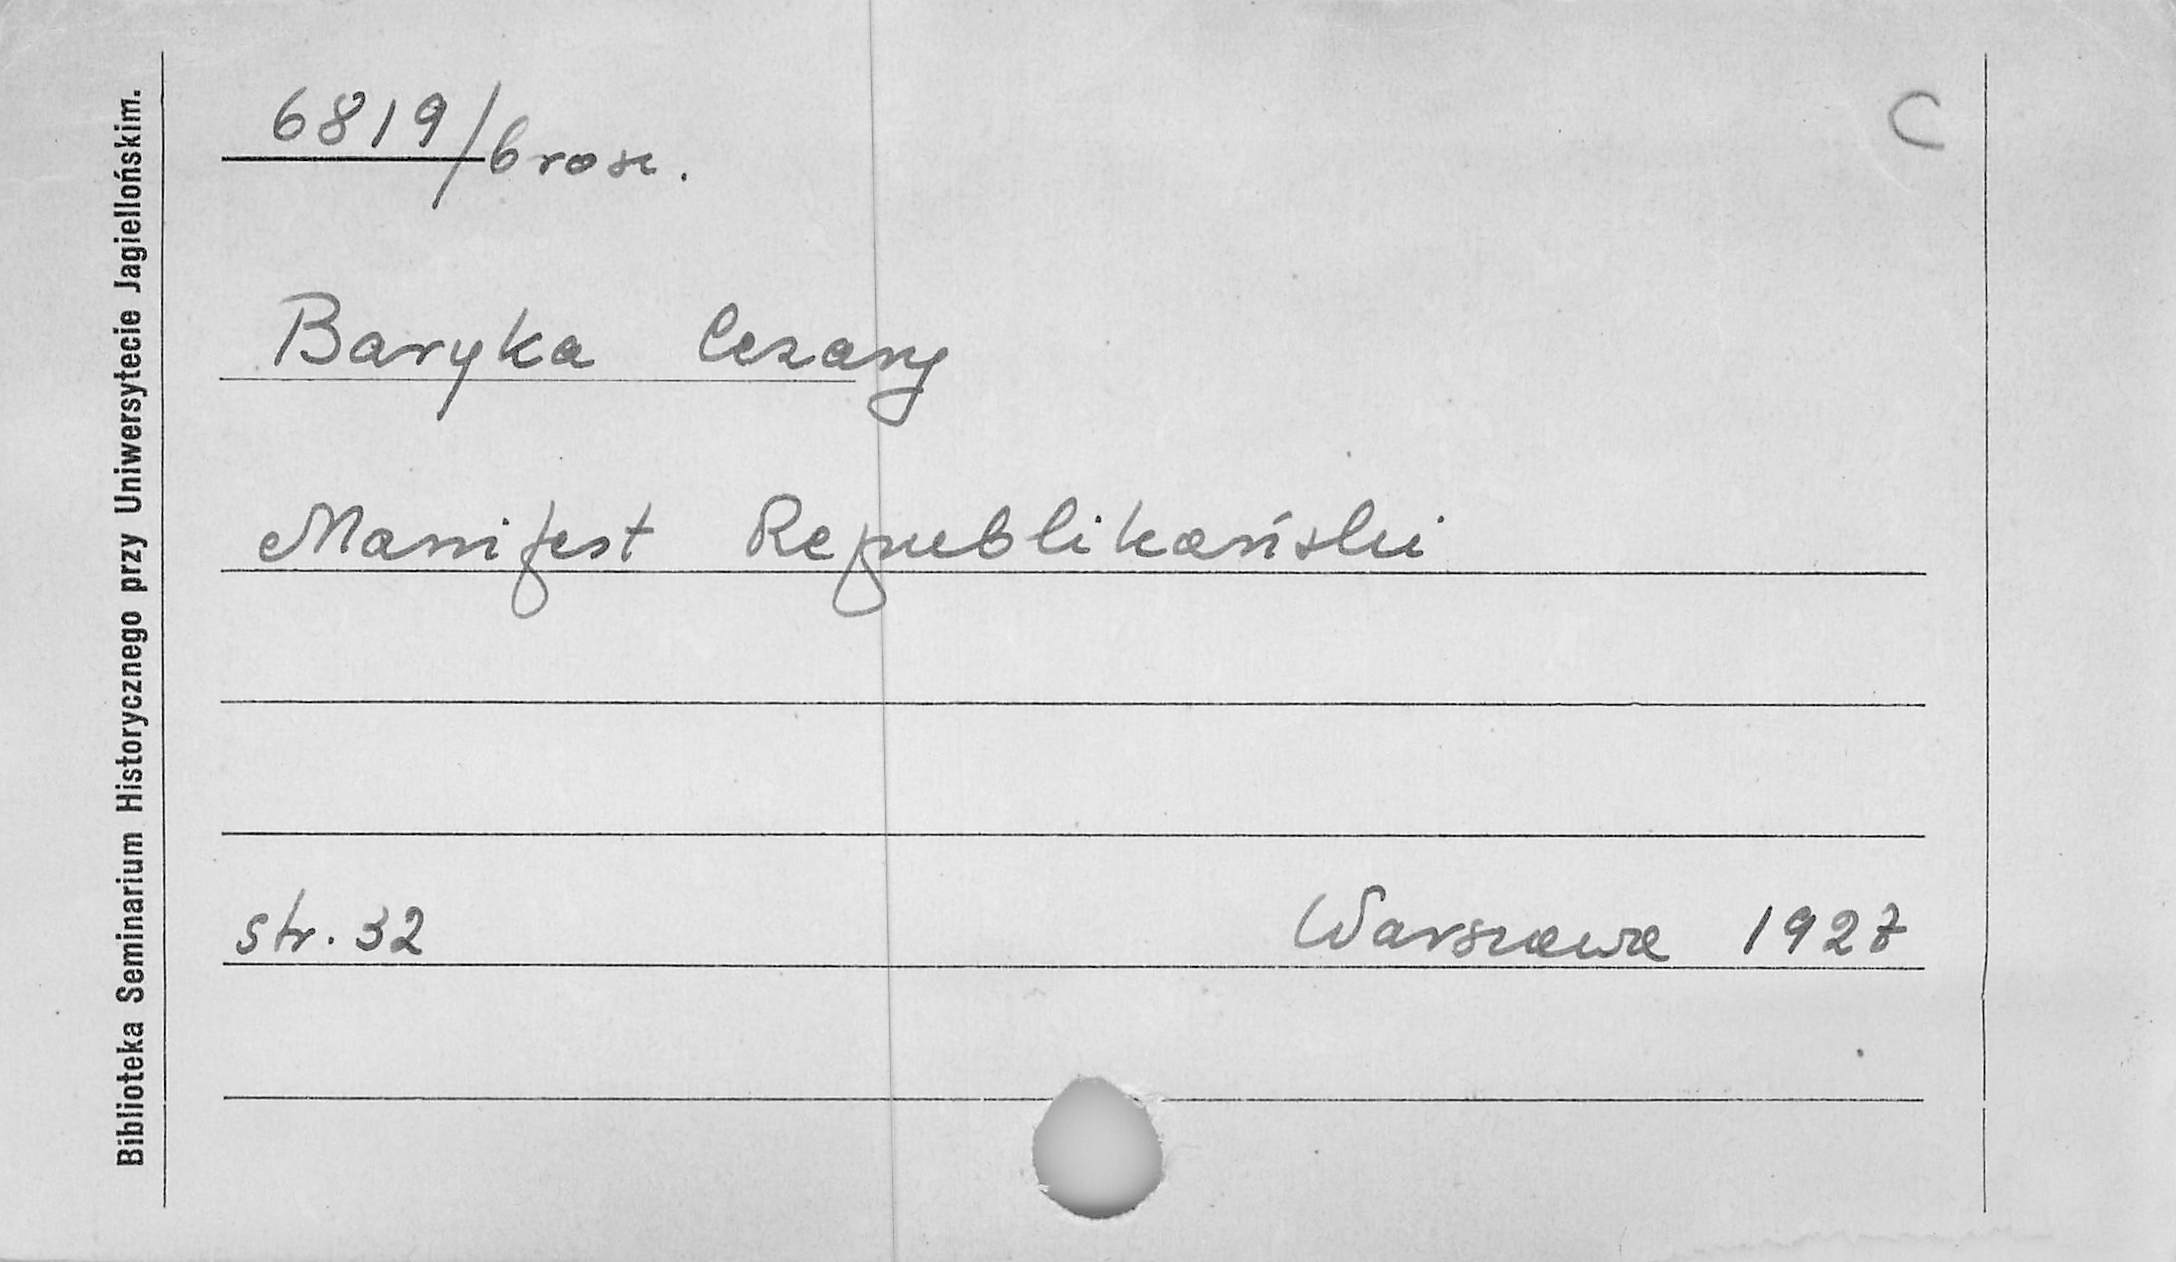 6819/brosz.
C
Baryka Cezary
Manifest Republikański
str. 32
Warszawa 1927
Biblioteka Seminarium Historycznego przy Uniwersytecie Jagiellońskim.